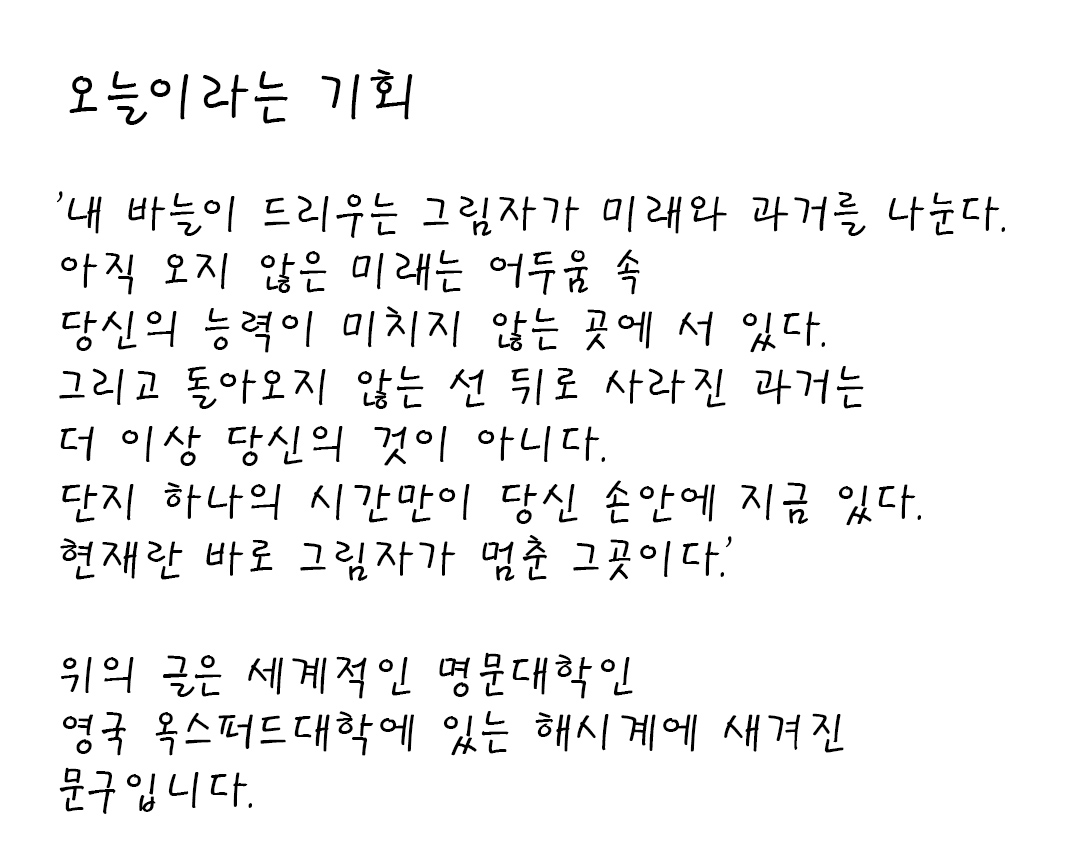 오늘이라는 기회
'내 바늘이 드리우는 그림자가 미래와 과거를 나눈다.
아직 오지 않은 미래는 어두움 속
당신의 능력이 미치지 않는 곳에 서 있다.
그리고 돌아오지 않는 선 뒤로 사라진 과거는
더 이상 당신의 것이 아니다.
단지 하나의 시간만이 당신 손안에 지금 있다.
현재란 바로 그림자가 멈춘 그곳이다.'
위의 글은 세계적인 명문대학인
영국 옥스퍼드대학에 있는 해시계에 새겨진
문구입니다.